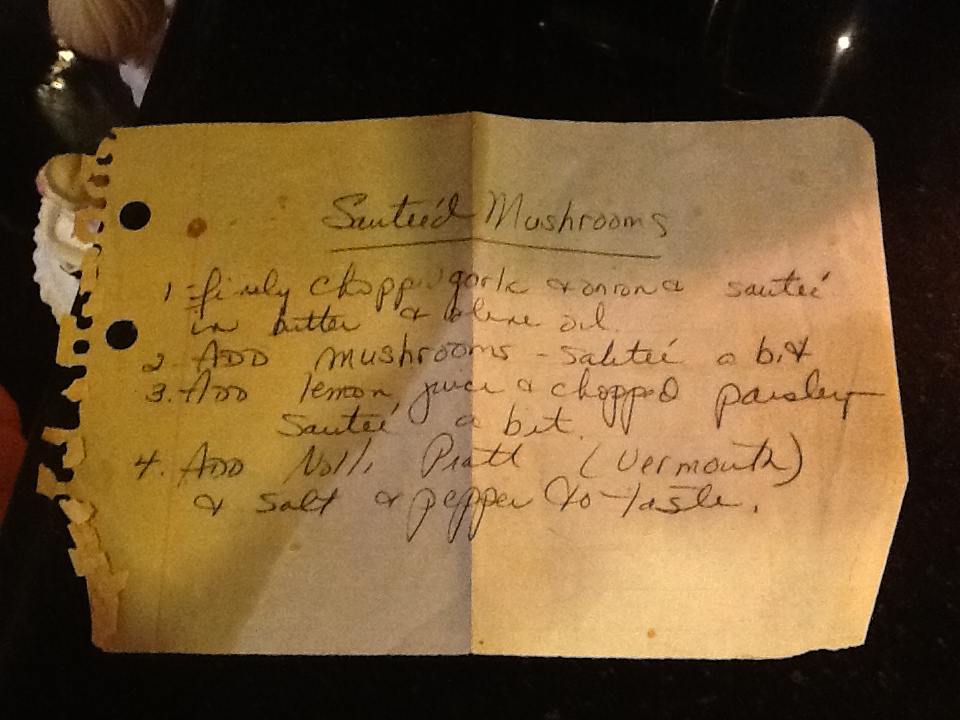 Sauteéd Mushrooms
1 - finely chopp garlic & onion & sauteé
in butter & olive oil.
2. ADD mushrooms - sauteé a bit
3. ADD lemon juice & chopped parsley
Sauteé a bit.
4. ADD Nolli Pratt (Vermouth)
& salt & pepper to taste.